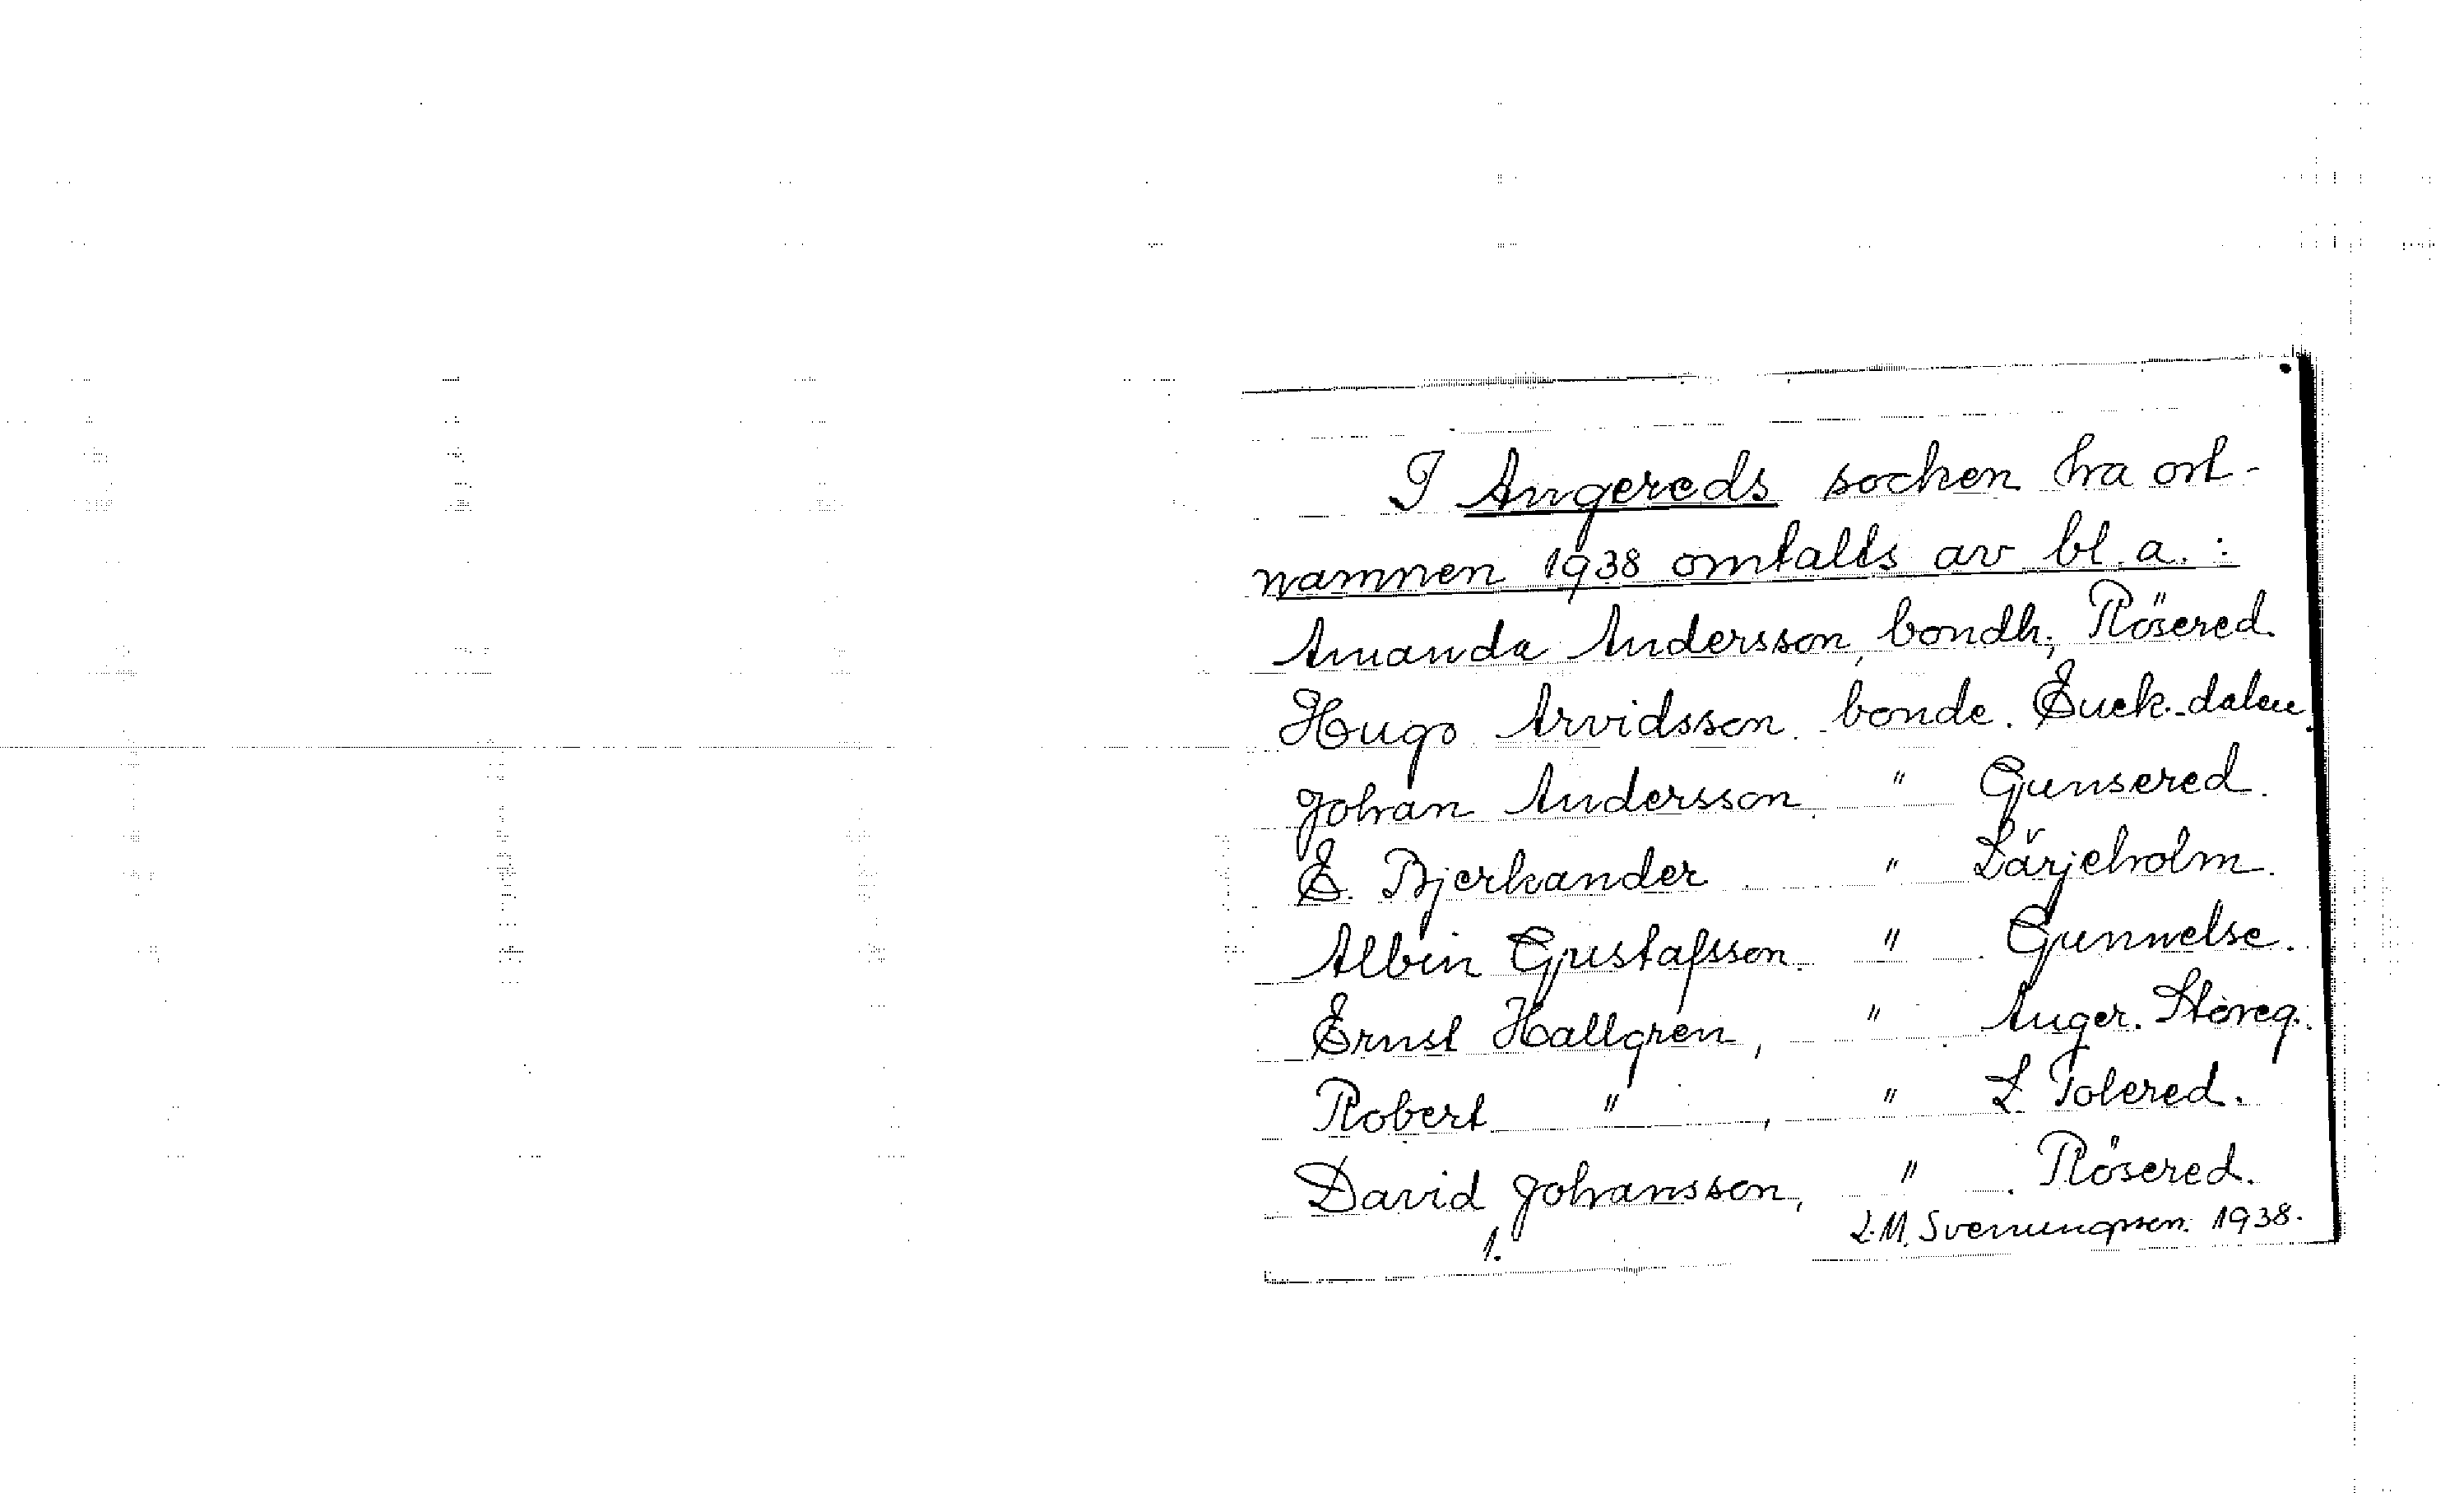 I Angereds socken ha ort-
namnen 1938 omtalts av bl. a. :
Amanda Andersson, bondh., Rösered.
Hugo Arvidsson. bonde. Euek.-dalen.
Johan Andersson. " Gunsered.
E. Bjerkander " Lärjeholm.
Albin Gustafsson. " Gunnelse.
Ernst Hallgren, " Anger. Storeg.
Robert " , " L. Tolered.
David Johansson, " Rösered.
1. L.M. Svenungsson. 1938.